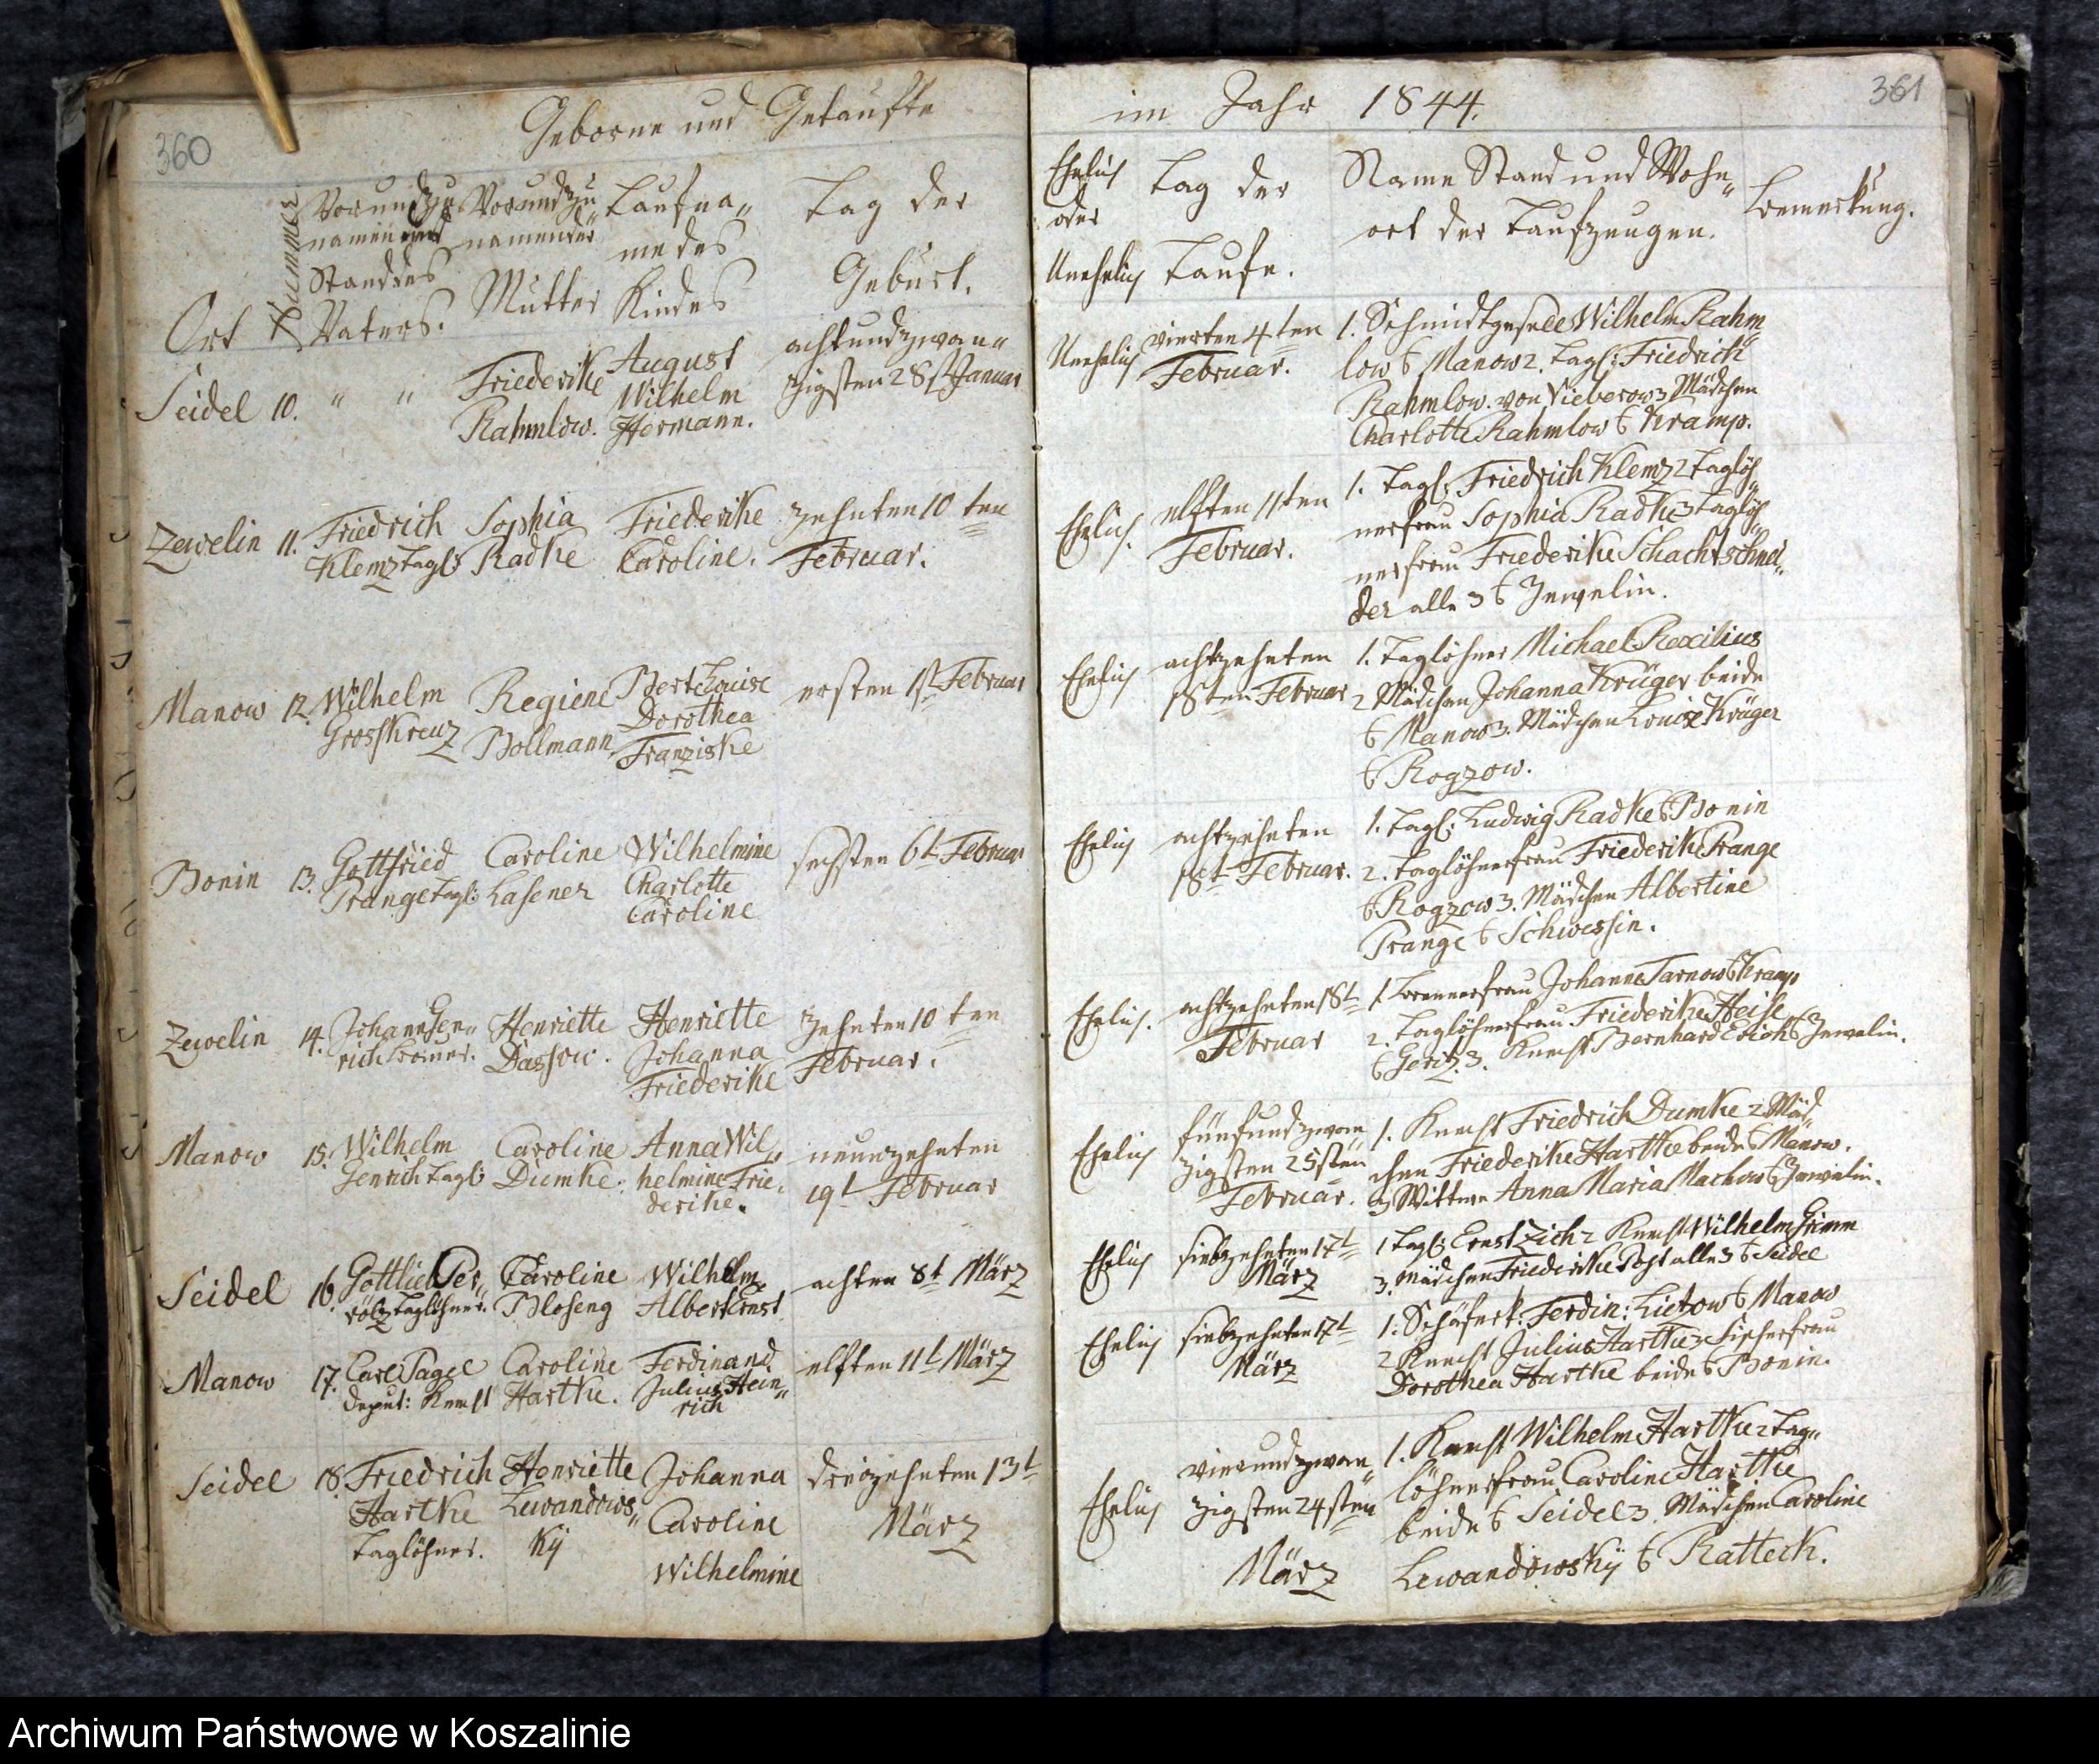 360
Geborne und Getaufte
Ort
Nummer
Vor und Zu
namen und
Stand des
Vaters.
Vor und Zu
namen der
Mutter
Taufna„
me des
Kindes
Tag der
Geburt.
Seidel 10. " "
Friederike
Rahmlow.
August
Wilhelm
Hermann.
achtundzwan„
zigsten 28st Januar
Zewelin 11. Friedrich
Klemz Tagl:
Sophia
Radke
Friederike
Caroline.
zehnten 10ten
Februar.
Manow 12. Wilhelm
Grosskreuz
Regiene
Bollmann
Bert Louise
Dorothea
Franziske
ersten 1st Februar
Bonin 13. Gottfried
Prange Tagl:
Caroline
Lasener
Wilhelmine
Charlotte
Caroline
sechsten 6t Februar
Zewelin 14. Johann Gen„
rich
Henriette
Dassow.
Henriette
Johanna
Friederike
zehnten 10ten
Februar.
Manow 15. Wilhelm
Genrich Tagl:
Caroline
Dumke.
Anna Wil„
helmine Frie„
derike.
neunzehnten
19t Februar
Seidel 16. Gottlieb Per„
Taglöhner.
Caroline
Bloseng
Wilhelm
Albert Ernst
achten 8t März
Manow 17. Carl Pagel
deput: Knecht
Caroline
Hartke.
Ferdinand
Julius Hein„
rich
elften 11t März
Seidel 18. Friedrich
Hartke
Taglöhner.
Henriette
Lewandows„
ky
Johanna
Caroline
Wilhelmine
dreizehnten 13t
März
361
im Jahr 1844.
Ehelich
oder
Unehelich
Tag der
Taufe.
Name Stand und Wohn„
ort der Taufzeugen.
Bemerkung.
Unehelich
vierten 4ten
Februar.
1. Schmidtgeselle Wilhelm Rahm„
low b Manow 2. Tagl: Friedrich
Rahmlow. von Vieberow 3 Mädchen
Charlotte Rahmlow b Kramp.
Ehelich.
elften 11ten
Februar.
1. Tagl: Friedrich Klemz 2 Taglöh„
nerfrau Sophia Radke 3 Taglöh„
nerfrau Friederike Schachtschnei„
der alle 3 b Zewelin.
Ehelich
achtzehnten
18ten Februar
1. Taglöhner Michael Rexilius
2 Mädchen Johanna Krüger beide
b Manow 3. Mädchen Louise Krüger
b Rogzow.
Ehelich
achtzehnten
18t Februar.
1. Tagl: Ludwig Radke b Bonin
2. Taglöhnerfrau Friederike Prange
b Rogzow 3. Mädchen Albertine
Prange b Schwessin.
Ehelich.
achtzehnten 18t
Februar
1. Brennerfrau Johanne Tarnow b Kramp
2. Taglöhnerfrau Friederike Heise
b Geritz. 3. Knecht Bernhard Erich b Zewelin.
Ehelich
fünfundzwan„
zigsten 25sten
Februar.
1. Knecht Friedrich Dumke 2 Mäd„
chen Friederike Hartke beide b Manow.
3 Wittwe Anna Maria Machow b Zewelin.
Ehelich
siebzehnten 17t
März
1 Tagl: Ernst Zich 2 Knecht Wilhelm Grimm
3. Mädchen Friederike Post alle 3 b Seidel
Ehelich
siebzehnten 17t
März
1. Schäferk: Ferdin: Lietzow b Manow
2 Knecht Julius Hartke 3 Fischerfrau
Dorothea Hartke beide b Bonin.
Ehelich
vierundzwan„
zigsten 24sten
März
1. Knecht Wilhelm Hartke 2 Tag„
löhnerfrau Caroline Hartke
beide b Seidel 3. Mädchen Caroline
Lewandowsky b Ratteck.
Archiwum Państwowe w Koszalinie